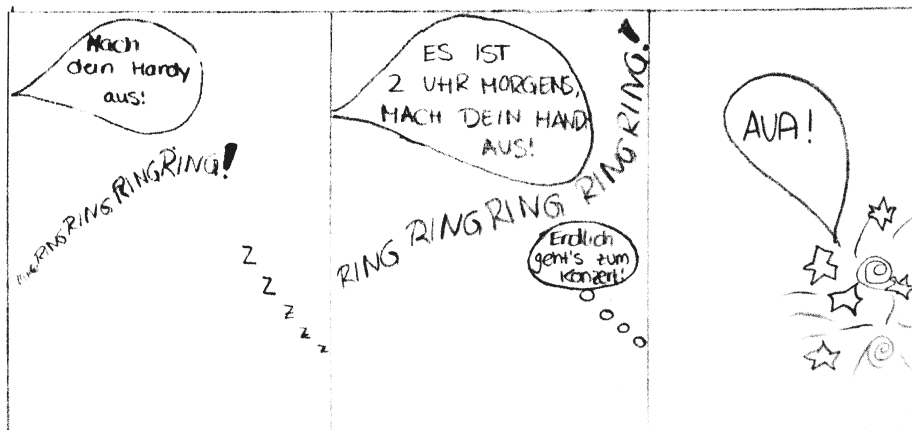 Mach
dein Handy
aus!
RING RING RING RING RING!
Z
Z
Z
Z
Z
ES IST
2 UHR MORGENS,
MACH DEIN HANDY
AUS!
RING RING RING RING RING!
Endlich
geht's zum
Konzert!
AUA!